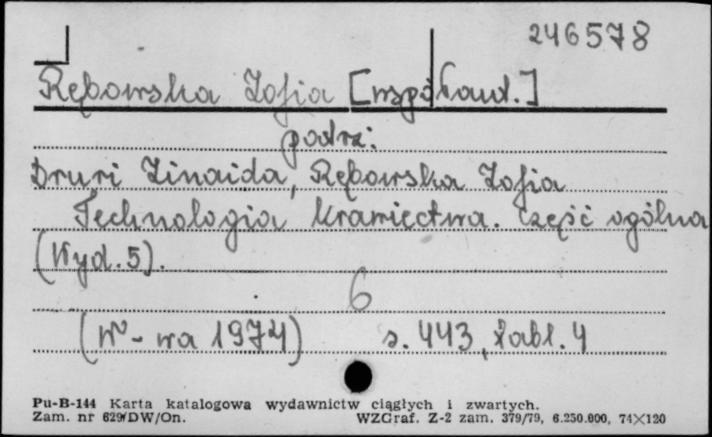 246578
Rębowska Zofia [współaut.]
patrz:
Druri Zinaida, Rębowska Zofia
Technologia krawiectwa. Część ogólna
(Wyd. 5).
6
(W-wa 1974) s. 443, tabl. 4
Pu-B-144 Karta katalogowa wydawnictw ciągłych i zwartych.
Zam. nr 629/DW/On. WZGraf. Z-2 zam. 379/79, 6.250.000, 74×120